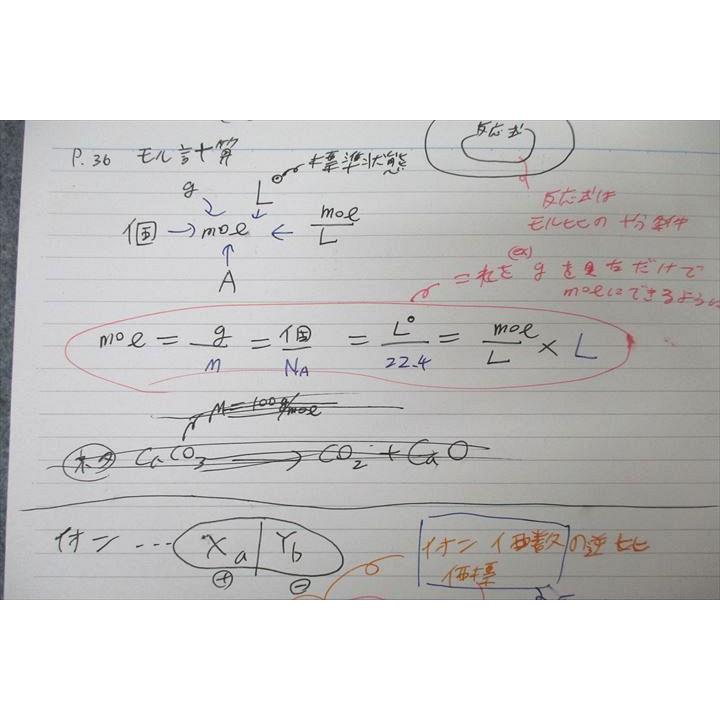 反応式
P.36 モル計算
g
L° 標準状態
個 → mol ← mol/L
A
反応式は
モル比の十分条件
(ex)
= これを g を見ただけで
molにできるように
mol = g/M = 個/NA = L°/22.4 = mol/L × L
M=100g/mol
CaCO₃ → CO₂ + CaO
イオン --- Xa | Yb
⊕ ⊖
イオン 価数の逆比
価標